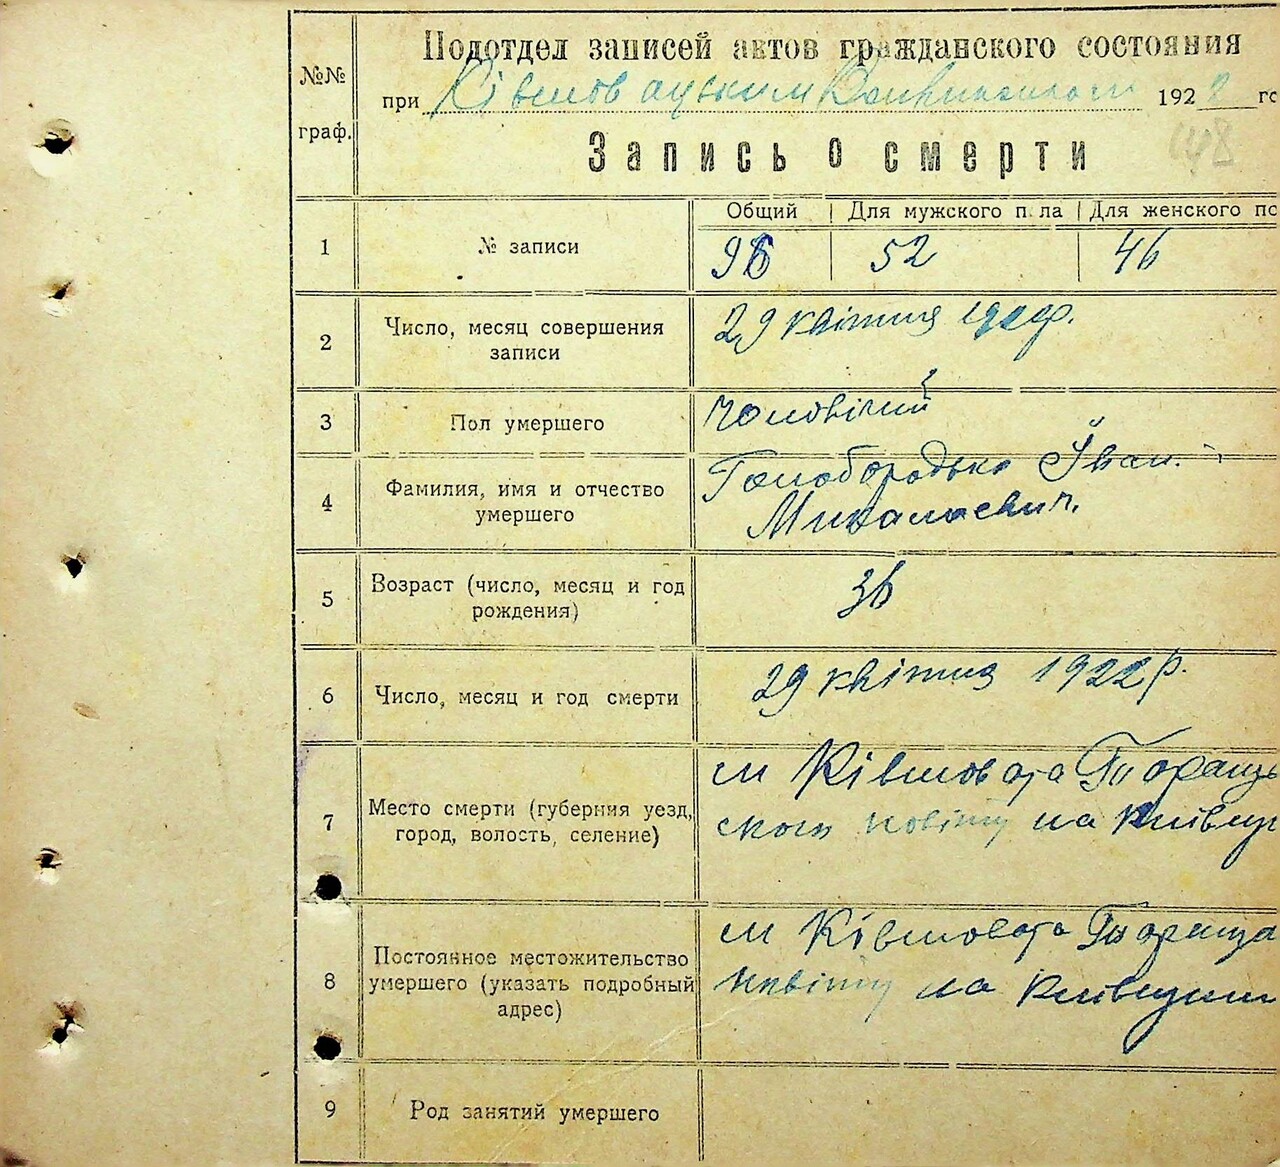 №№
граф.
Подотдел записей актов гражданского состояния
при 192 го
148
Запись о смерти
1
№ записи
Общий
Для мужского пола
Для женского по
98
52
46
2
Число, месяц совершения
записи
29 квітня
3
Пол умершего
Чоловічий
4
Фамилия, имя и отчество
умершего
Голобородько Іван
Миколаевич.
5
Возраст (число, месяц и год
рождения)
36
6
Число, месяц и год смерти
29 квітня 1922 р.
7
Место смерти (губерния уезд,
город, волость, селение)
м Ківшовата Таращь
ского повіту на Київщ
8
Постоянное местожительство
умершего (указать подробный
адрес)
м Ківшовата Тараща
повіту на Київщини
9
Род занятий умершего